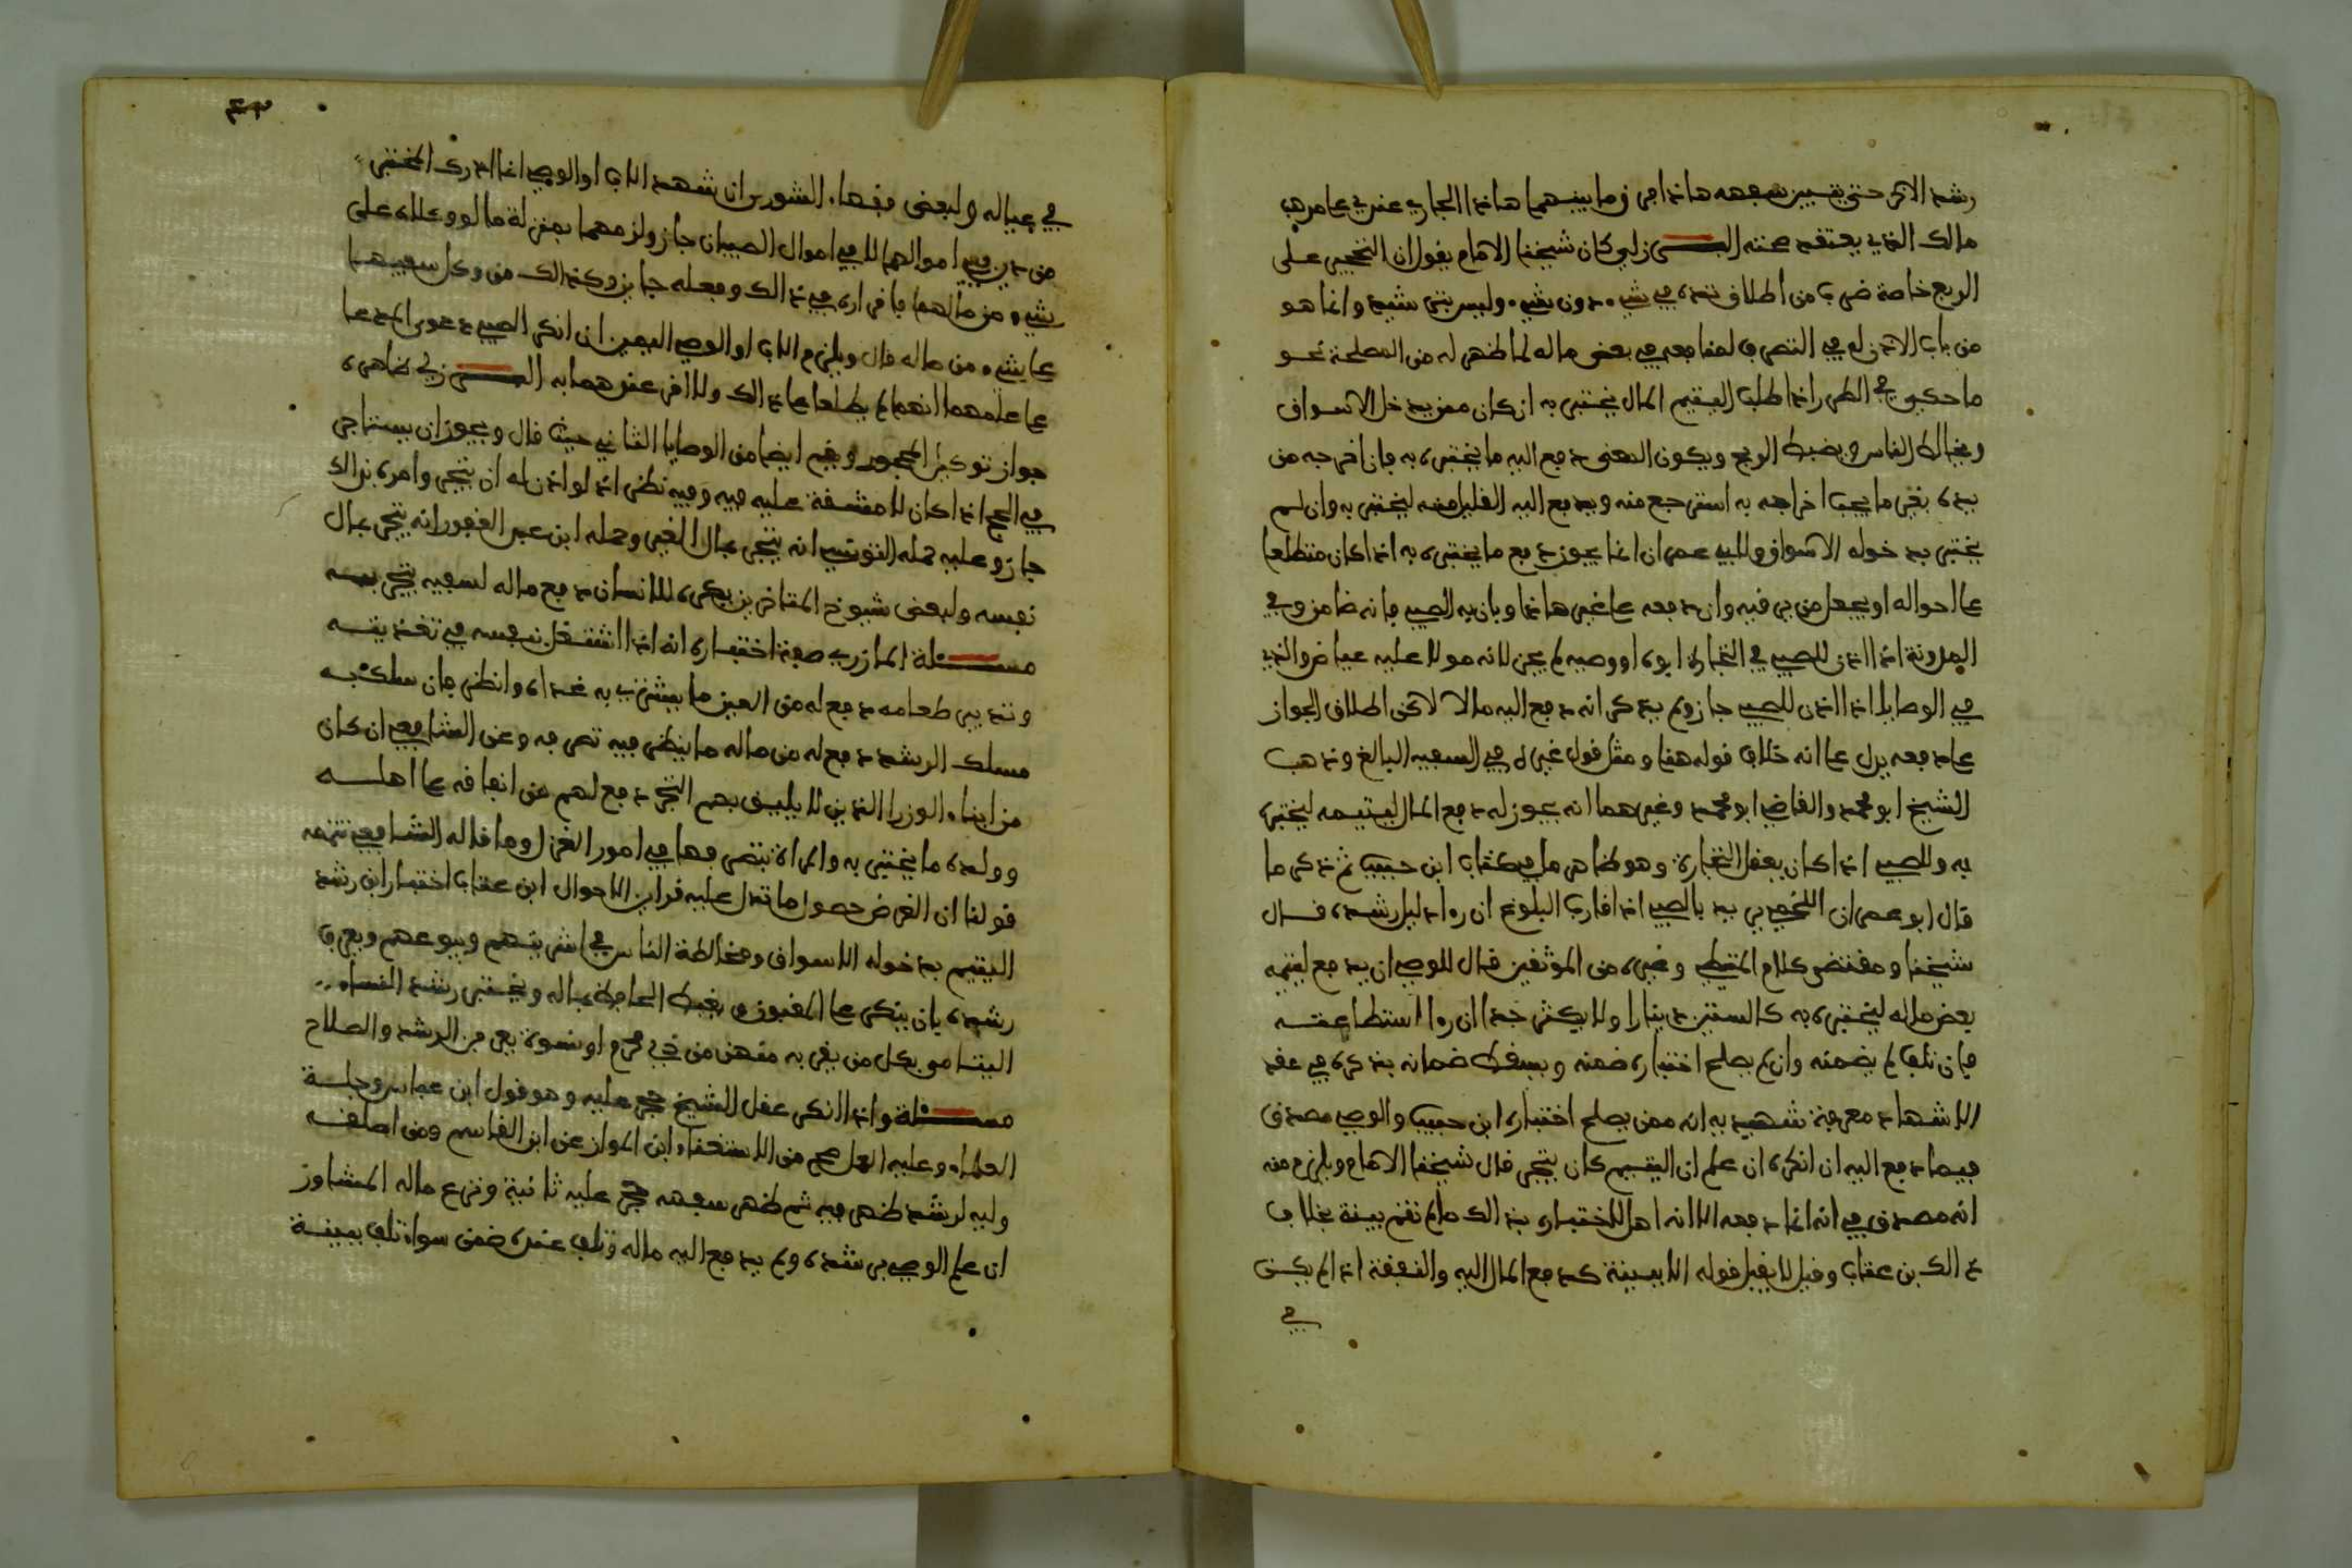 رشد الاخر حتى يتبين سفهه هاذا من وما بينهما هاذا الجاري عندي على مذهب
مالك الذي يعتقد صحته البرزلي كان شيخنا الامام يقول ان التحجير على
الربع خاصة ضرب من اطلاق يده في شيء دون شيء وليس بترشيد وانما هو
من باب الاذن له في التصرف لمنافعه في بعض ماله لما ظهر له من المصلحة نحو
ما حكى في الطرر اذا طلب اليتيم المال يختبر به ان كان ممن يدخل الاسواق
ويخالط الناس ويضبط الربع ويكون المعنى دفع اليه ما يختبره به فان اخرجه من
يده بغير ما يجب اخراجه به استرجع منه ويدفع اليه القليل منه ليختبر به وان لم
يختبر بدخوله الاسواق ولابي عمران انما يجوز دفع ما يختبره به اذا كان متطلعا
على احواله او يجعل من يرقبه وان دفعه على غير هاذا وبان به الصبي فانه ضامن وفي
المدونة اذا اذن للصبي في التجارة ابوه او وصيه لم يجز لانه مولا عليه عياض والذي
في الوصايا اذا اذن للصبي جاز ولم يذكر انه دفع اليه مالا لاكن اطلاق الجواز
على دفعه يدل على انه خلاف قوله هنا ومثل قول غيره في السفيه البالغ وذهب
الشيخ ابو محمد والقاضي ابو محمد وغيرهما انه يجوز له دفع المال ليتيمه ليختبره
به وللصبي اذا كان يعقل التجارة وهو ظاهر ما في كتاب ابن حبيب ثم ذكر ما
قال ابو عمران اللخمي يريد بالصبي اذا قارب البلوغ ان راء دليل رشده قال
شيخنا ومقتضى كلام المتيطي وغيره من الموثقين قال للوصي ان يدفع ليتيمه
بعض ماله ليختبره به كالستين دينارا ولا يكثر جدا ان راا استطاعته
فان تلف لم يضمنه وان لم يصلح اختباره ضمنه ويسقط ضمانه بذكره في عقد
الاشهاد معرفة شهيديه انه ممن يصلح اختباره ابن حبيب والوصي مصدق
فيما دفع اليه ان انكره ان علم ان اليتيم كان يتجر قال شيخنا الامام ويلزم منه
انه مصدق في انه انما دفعه الا انه اهل للاختبار بذالك ما لم تقم بينة بخلاف
ذالك بن عتاب وقيل لا يقبل قوله الا ببينة كدفع المال اليه والنفقة اذا لم يكن
في
٤٣
في عياله ولبعض فقهاء الشورى ان شهد الاب او الوصي اذا ادرك المختبر
من دين في اموالهما لا في اموال الصبيان جاز ولزمهما بمنزلة ما لو وكلاه على
شيء من مالهما فاقراره في ذالك وفعله جايز وكذالك من وكل سفيها
على شيء من ماله قال ويلزم الاب او الوصي اليمين ان انكر الصبي دعوى المدعا
على علمهما انهما لم يطلعا على ذالك ولا اقر عندهما به البرزلي ظاهره
جواز توكيل المحجور وفيه ايضا من الوصايا الثاني حيث قال ويجوز ان يستاجر
في الحج اذا كان لا مشقة عليه فيه وفيه نظر اذ لو اذن له ان يتجر وامره بذالك
جاز وعليه حمله التونسي انه يتجر بمال الغير وحمله ابن عبد الغفور انه يتجر بمال
نفسه ولبعض شيوخ المتاخرين يكره للانسان دفع ماله لسفيه يتجر به
مسئلة المازري صفة اختباره انه اذا اشتغل بنفسه في تغذيته
وتدبير طعامه دفع له من العين ما يشتري به غداه وانظر فان سلك به
مسلك الرشد دفع له من ماله ما ينظر فيه تصرفه وعن الشافعي ان كان
من ابناء الوزرا الذين لا يليق بهم التجر دفع لهم من انفاقه على اهله
وولده ما يختبر به والمراة بتصرفها في امور الغزل وما قاله الشافعي تتمه
قولنا ان الغرض حصول ما تدل عليه قراين الاحوال ابن عتاب اختبار ابن رشد
اليتيم بدخوله الاسواق ومخالطة الناس في اشريتهم وبيوعهم ويعرف
رشده بان ينكر على المغبون ويغبط الحافظ بماله ويختبر رشد النساء
اليتامى بكل من يقربه منهن من ذي محرم او نسوة يعرفن الرشد والصلاح
مسئلة واذا انكر عقل الشيخ حجر عليه وهو قول ابن عباس وجلة
العلماء وعليه العمل صح من الاستغناء ابن المواز عن ابن القاسم ومن اطلقه
وليه لرشد ظهر فيه ثم ظهر سفهه حجر عليه ثانية ونزع ماله المشاور
ان علم الوصي برشده ولم يدفع اليه ماله وتلف عنده ضمن سواء تلف ببينة